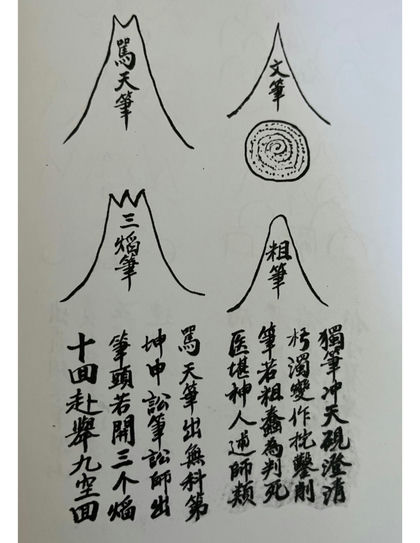 文筆
罵天筆
粗筆
三熖筆
獨筆冲天硯澄清
濁變作鑿削
筆若粗蠢為判死
医堪神人師類
罵天筆出無科第
坤申訟筆訟師出
筆頭若開三个熖
十回赴舉九空回